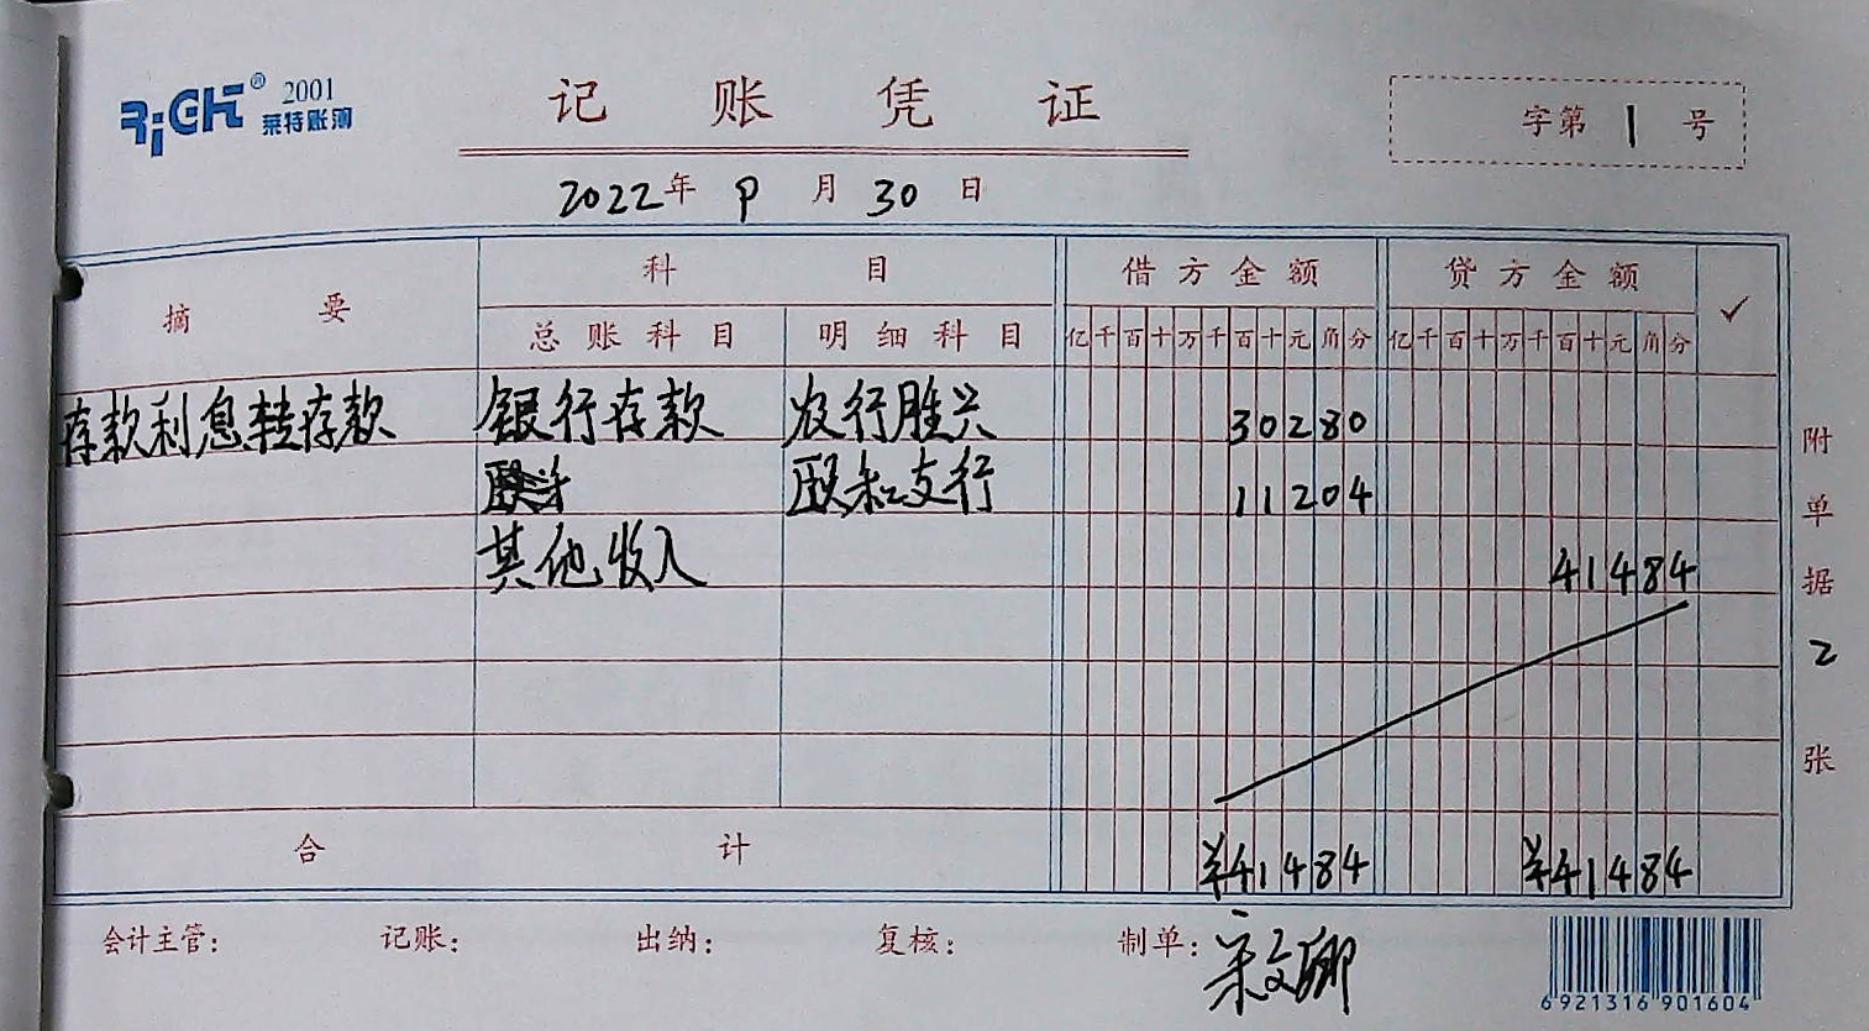 RiGHT® 2001
莱特账簿
记 账 凭 证
字第 1 号
2022年 9 月 30 日
摘 要 科 目 借方金额 贷方金额 ✓
总账科目 明细科目 亿千百十万千百十元角分 亿千百十万千百十元角分
存款利息转存款 银行存款 农行胜兴 30280
支行 11204
其他收入 41484
合 计 ¥41484 ¥41484
附单据 2 张
会计主管: 记账: 出纳: 复核: 制单:
6 921316 901604